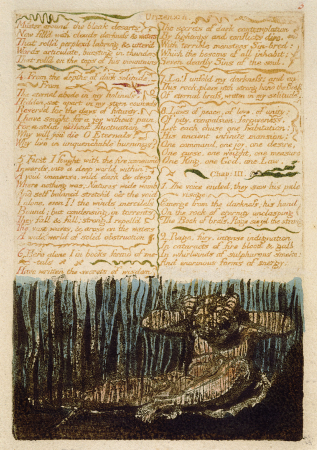 Urizen
Muster around the bleak desarts
Now fill'd with clouds, darkness & waters
That roll'd perplex'd labring & utter'd
Words articulate, bursting in thunders
That roll'd on the tops of his mountains
4: From the depths of dark solitude.
From
The eternal abode in my holiness,
Hidden, set apart in my stern counsels
Reserv'd for the days of futurity,
I have sought for a joy without pain,
For a solid without fluctuation
Why will you die O Eternals?
Why live in unquenchable burnings?
5 First I fought with the fire; consum'd
Inwards, into a deep world within:
A void immense, wild dark & deep,
Where nothing was; Natures wide womb
And self balanc'd stretch'd o'er the void
I alone, even I! the winds merciless
Bound; but condensing, in torrents
They fall & fall; strong I repell'd
The vast waves, & arose on the waters
A wide world of solid obstruction
6. Here alone I in books form'd of me-
-tals
Have written the secrets of wisdom
The secrets of dark contemplation
By fightings and conflicts dire,
With terrible monsters Sin-bred:
Which the bosoms of all inhabit;
Seven deadly Sins of the soul.
7. Lo! I unfold my darkness: and on
This rock, place with strong hand the Book
Of eternal brass, written in my solitude.
8. Laws of peace, of love, of unity:
Of pity, compassion, forgiveness.
Let each chuse one habitation:
His ancient infinite mansion:
One command, one joy, one desire,
One curse, one weight, one measure
One King, one God, one Law.
Chap: III.
1. The voice ended, they saw his pale
visage
Emerge from the darkness; his hand
On the rock of eternity unclasping
The Book of brass. Rage siez'd the strong
2. Rage, fury, intense indignation
In cataracts of fire blood & gall
In whirlwinds of sulphurous smoke:
And enormous forms of energy;